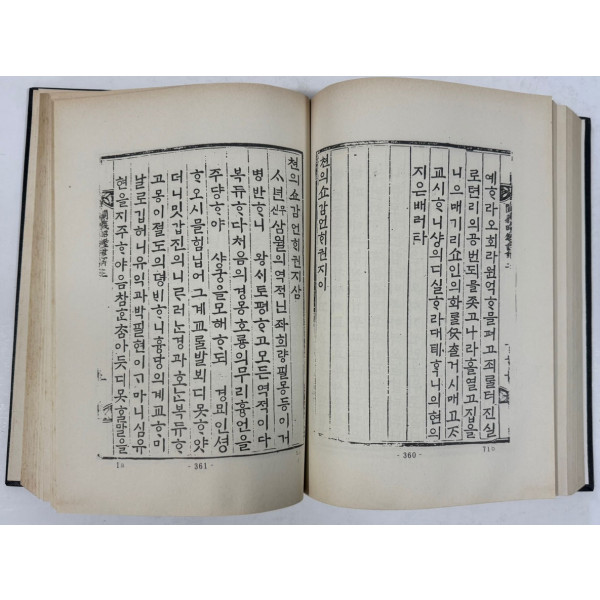 예ᄒᆞ라오회라원억ᄒᆞ믈펴고죄를터진실
로텬리의공번되믈좃고나라흘열고집을
니으매기리쇼인의화를 츌거시매고ᄌᆞ
교시ᄒᆞ니샹의디실ᄒᆞ라대톄ᄒᆞ니의현의
지은배러라
쳔의쇼감언ᄒᆡ권지이
- 360 -
710
쳔의쇼감언ᄒᆡ권지삼
ᄉᆞ년무신삼월의역적닌좌희량필몽등이거
병반ᄒᆞ니 왕ᄉᆡ토평ᄒᆞ고모든역적이다
복듀ᄒᆞ다처음의경몽호룡의무리흉언을
주댱ᄒᆞ야 샹옹을모해ᄒᆞ되 경묘인셩
ᄒᆞ오시믈힘닙어그계교ᄅᆞᆯ발뵈디못ᄒᆞ얏
더니밋갑진의니ᄅᆞ러ᄂᆞᆫ경과호ᄂᆞᆫ복듀ᄒᆞ
고몽이졀도의뎡비ᄒᆞ니흉당의계교ᄒᆞ미
날로깁허니유익과박필현이ᄀᆞ마니심유
현을지주ᄒᆞ야음참ᄒᆞᆫᄎᆞᆷ아듯디못ᄒᆞᆯ말을
- 361 -